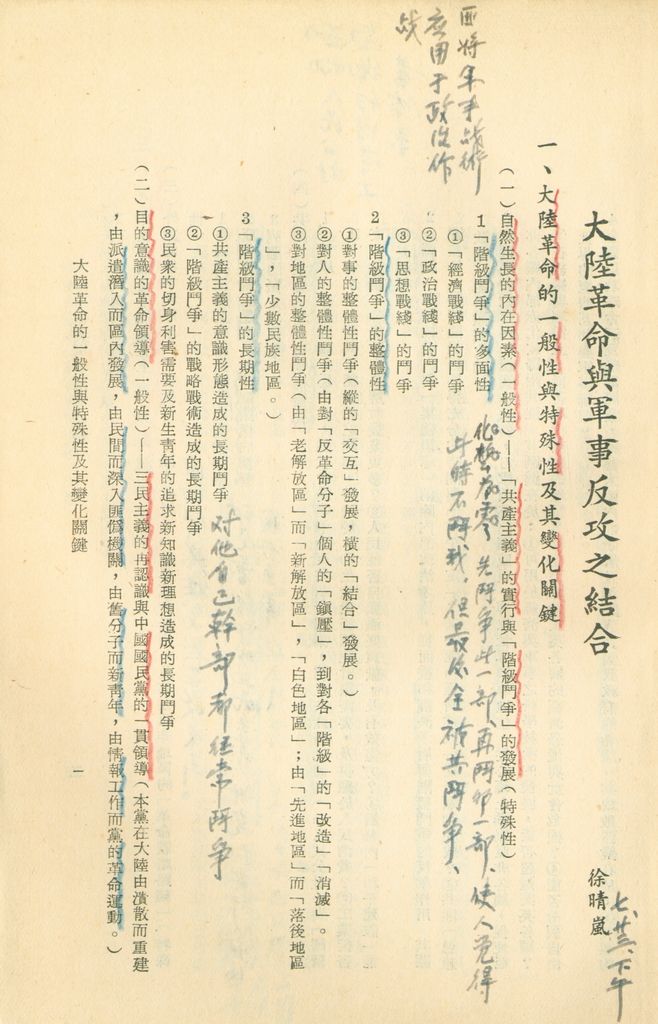 大陸革命與軍事反攻之結合
徐晴嵐
七、廿三、下午
一、大陸革命的一般性與特殊性及其變化關鍵
(一)自然生長的內在因素(一般性)——「共產主義」的實行與「階級鬥爭」的發展(特殊性)
匪將軍事戰術
应用于政治作
战
1「階級鬥爭」的多面性
①「經濟戰綫」的鬥爭
②「政治戰綫」的鬥爭
③「思想戰綫」的鬥爭
化整為零 先鬥爭此一部、再鬥那一部、使人覺得
斗時不鬥我、但最後全被共鬥爭、
2「階級鬥爭」的整體性
①對事的整體性鬥爭(縱的「交互」發展,橫的「結合」發展。)
②對人的整體性鬥爭(由對「反革命分子」個人的「鎮壓」,到對各「階級」的「改造」「消滅」。
③對地區的整體性鬥爭(由「老解放區」而「新解放區」,「白色地區」;由「先進地區」而「落後地區
」,「少數民族地區。)
3「階級鬥爭」的長期性
①共產主義的意識形態造成的長期鬥爭
对他自己幹部都经常鬥争
②「階級鬥爭」的戰略戰術造成的長期鬥爭
③民衆的切身利害需要及新生青年的追求新知識新理想造成的長期鬥爭
(二)目的意識的革命領導(一般性)——三民主義的再認識與中國國民黨的一貫領導(本黨在大陸由潰散而重建
,由派遣潛入而區內發展,由民間而深入匪僞機關,由舊分子而新青年,由情報工作而黨的革命運動。)
大陸革命的一般性與特殊性及其變化關鍵
一